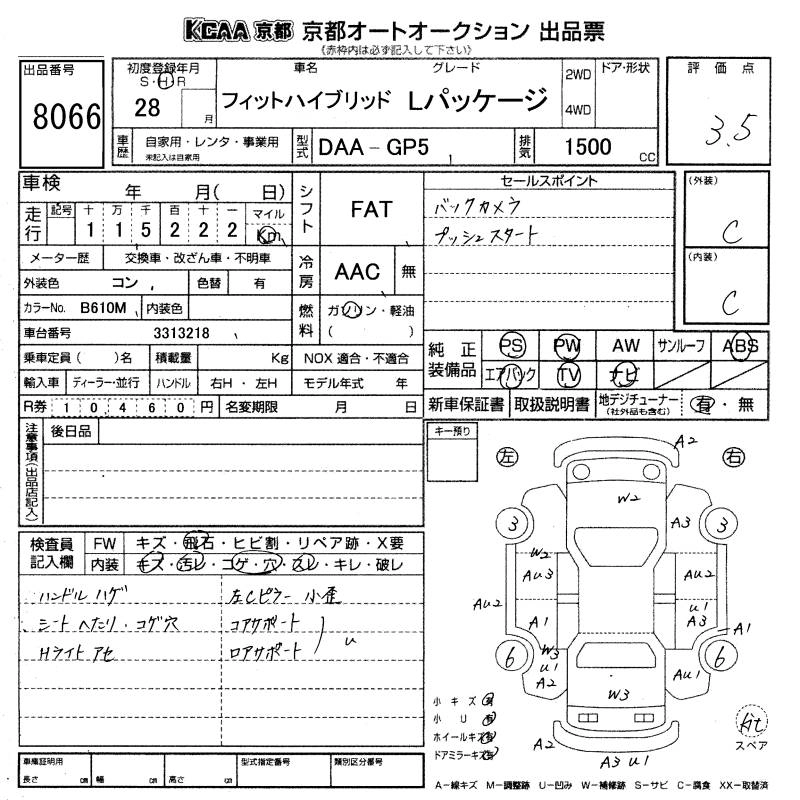 KCAA 京都 京都オートオークション 出品票
(赤枠内は必ず記入して下さい)
出品番号
8066
初度登録年月
S・H・R
28 月
車名
グレード
フィットハイブリッド Lパッケージ
2WD
4WD
ドア・形状
評価点
3.5
車歴
自家用・レンタ・事業用
未記入は自家用
型式
DAA-GP5
排気
1500 CC
車検 年 月( 日)
走行
記号 十 万 千 百 十 一 マイル
1 1 5 2 2 2 Km
メーター歴 交換車・改ざん車・不明車
外装色 コン 色替 有
カラーNo. B610M 内装色
車台番号 3313218
乗車定員( )名 積載量 Kg NOX 適合・不適合
輸入車 ディーラー・並行 ハンドル 右H・左H モデル年式 年
R券 10460円 名変期限 月 日
シフト
FAT
冷房
AAC 無
燃料
ガソリン・軽油
( )
セールスポイント
バックカメラ
プッシュスタート
(外装)
C
(内装)
C
純正装備品
PS PW AW サンルーフ ABS
エアバック TV ナビ
新車保証書 取扱説明書 地デジチューナー
(社外品も含む)
有・無
注意事項(出品店記入)
後日品
キー預り
検査員記入欄
FW キズ・飛石・ヒビ割・リペア跡・X要
内装 キズ・汚レ・コゲ・穴・スレ・キレ・破レ
ハンドル ハゲ
シート へたり・コゲ穴
Hライト アセ
左Cピラー 小歪
コアサポート
ロアサポート
u
左
右
A2
W2
3
A3
3
W2
AU3
AU2
AU2
A1
U1
A3
A1
6
W3
U1
A2
6
AU1
W3
A2
A3 U1
小キズ 有
小U 有
ホイールキズ 有
ドアミラーキズ 有
kit
スペア
車庫証明用
長さ cm 幅 cm 高さ cm
型式指定番号
類別区分番号
A-線キズ M-調整跡 U-凹み W-補修跡 S-サビ C-腐食 XX-取替済